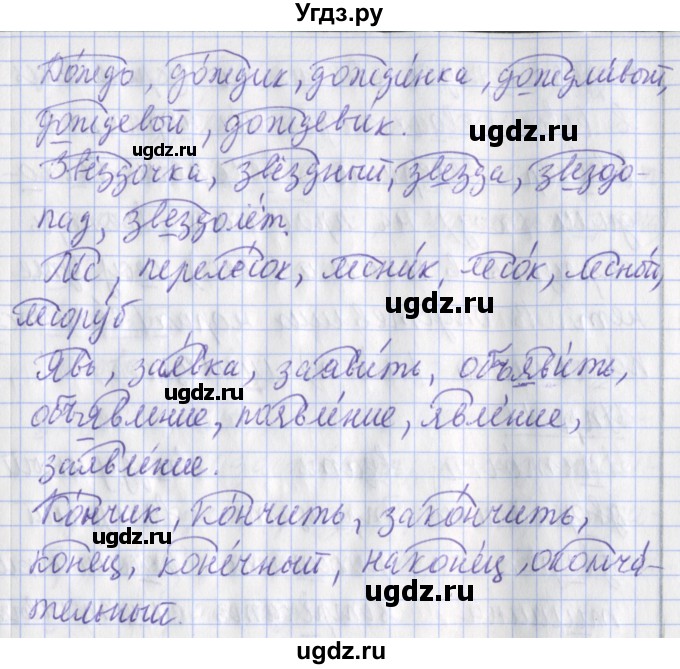 Угдз.ру
Дождь, до́ждик, дожди́нка, дождли́вый,
дождевый, дождеви́к.
ugdz.ru
ugdz.ru
Звёздочка, звёздный, звезда, звездо-
пад, звездолёт.
ugdz.ru
Лес, переле́сок, лесни́к, лесо́к, лесно́й,
ugdz.ru
лесору́б
Явь, зая́вка, заяви́ть, объяви́ть,
объявление, появле́ние, явле́ние,
заявле́ние.
ugdz.ru
Ко́нчик, ко́нчить, зако́нчить,
ugdz.ru
конец, коне́чный, наконе́ц, оконча́-
тельный.
ugdz.ru
ugdz.ru